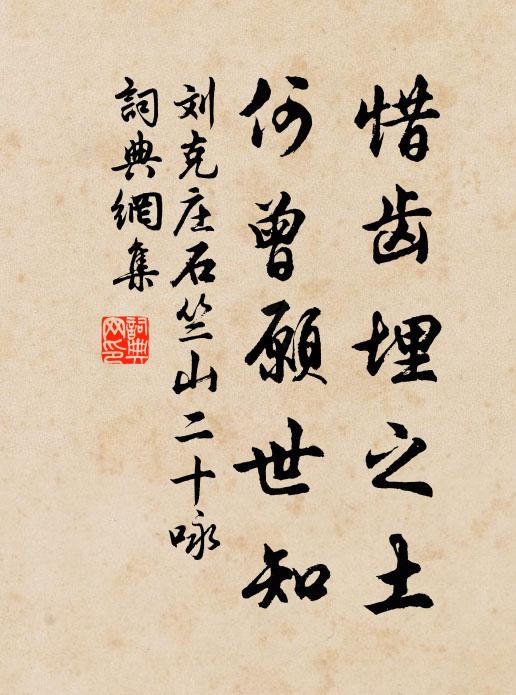 惜齿埋之土
何曾願世知
刘克庄石竺山二十咏
詞典網集
詞典
网印